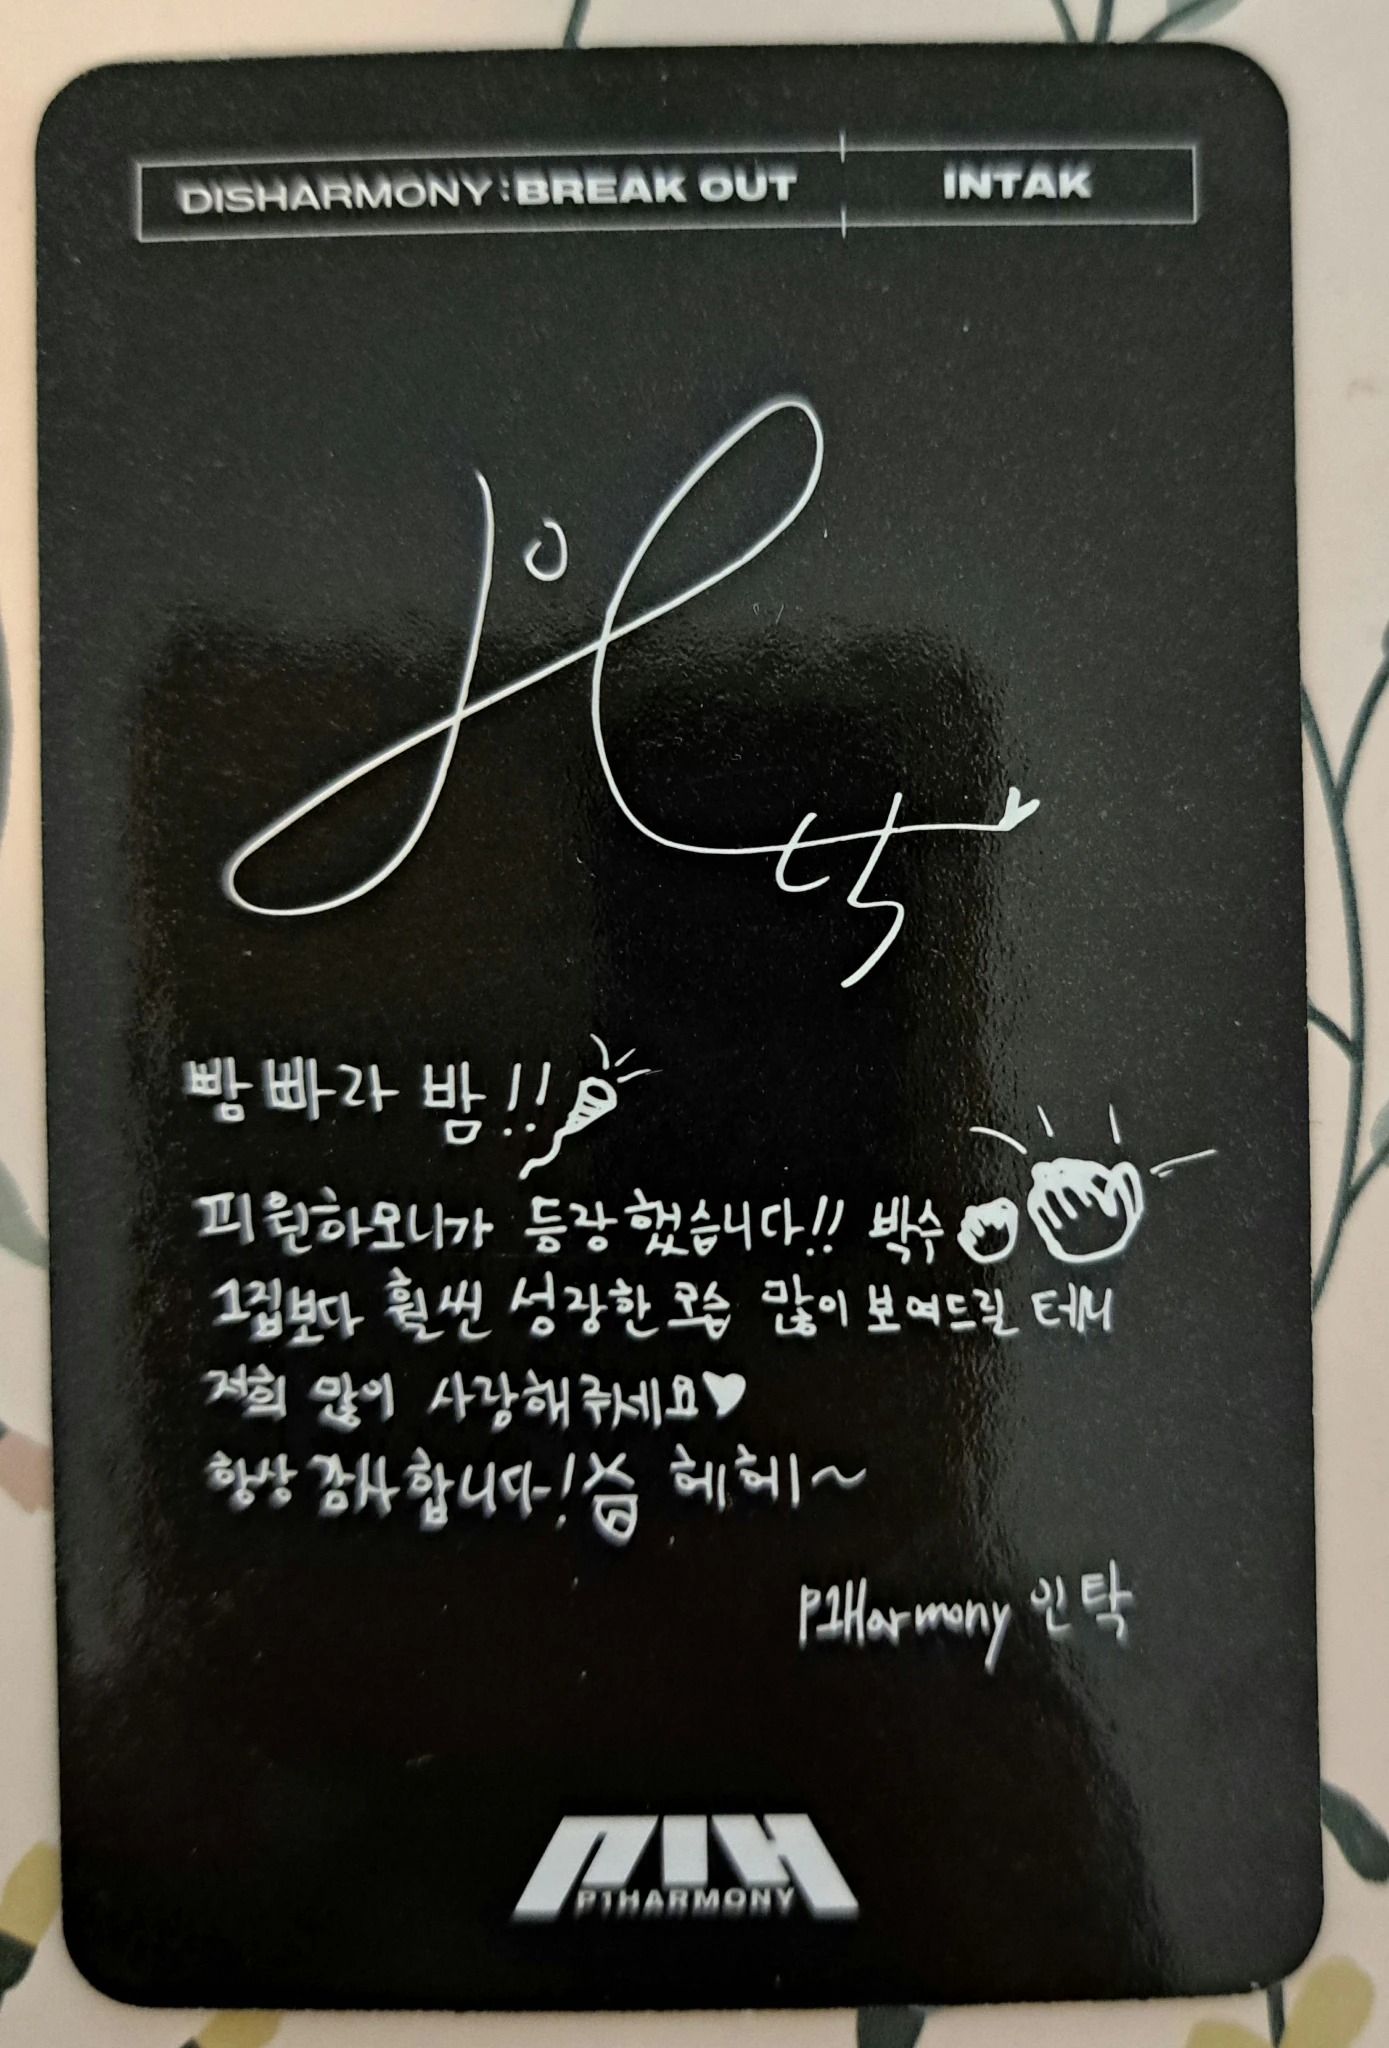 DISHARMONY:BREAK OUT INTAK
인탁
빰빠라 밤!!
피원하모니가 등장했습니다!! 박수
1집보다 훨씬 성장한 모습 많이 보여드릴 테니
저희 많이 사랑해주세요♥
항상 감사합니다! 헤헤~
P1Harmony 인탁
P1H
P1HARMONY